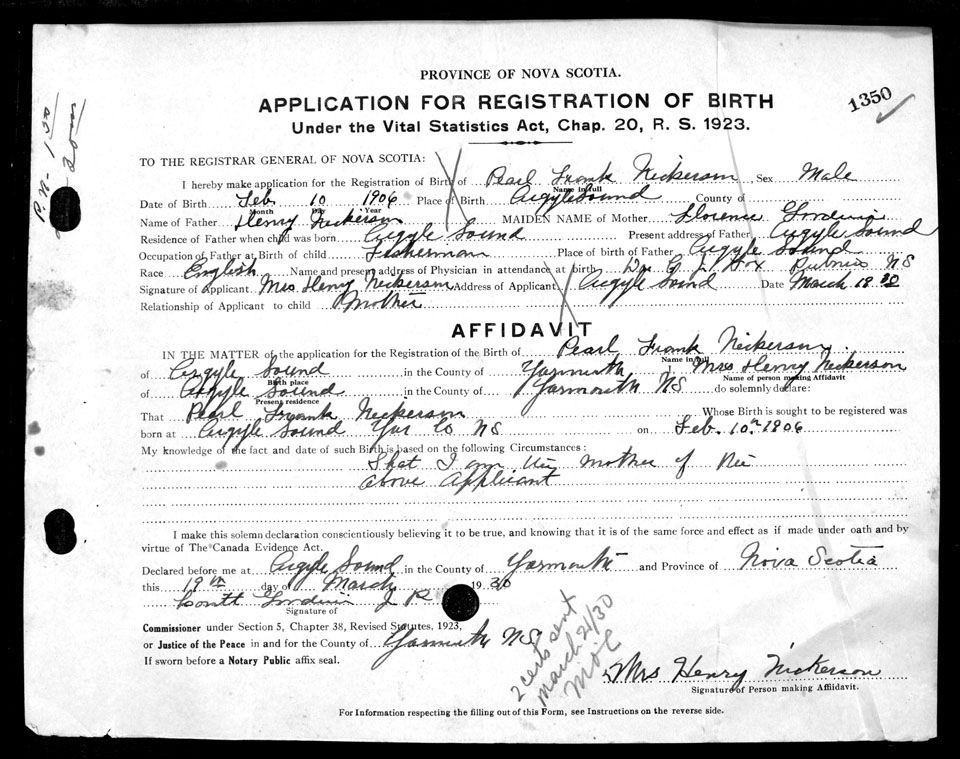 PROVINCE OF NOVA SCOTIA.
APPLICATION FOR REGISTRATION OF BIRTH
1350
Under the Vital Statistics Act, Chap. 20, R. S. 1923.
TO THE REGISTRAR GENERAL OF NOVA SCOTIA:
I hereby make application for the Registration of Birth of Pearl Frank Nickerson Sex Male
Name in full
Date of Birth Feb. 10 1906 Place of Birth Argyle Sound County of
Month Day Year
Name of Father Henry Nickerson MAIDEN NAME of Mother Florence Goodwin
Residence of Father when child was born Argyle Sound Present address of Father Argyle Sound
Occupation of Father at Birth of child Fisherman Place of birth of Father Argyle Sound
Race English Name and present address of Physician in attendance at birth Dr. Fox Pubnico NS
Signature of Applicant Mrs Henry Nickerson Address of Applicant Argyle Sound Date March 18
Relationship of Applicant to child Mother
AFFIDAVIT
IN THE MATTER of the application for the Registration of the Birth of Pearl Frank Nickerson
Name in full
of Argyle Sound in the County of Yarmouth I Mrs Henry Nickerson
Birth place Name of person making Affidavit
of Argyle Sound in the County of Yarmouth NS do solemnly declare:
Present residence
That Pearl Frank Nickerson Whose Birth is sought to be registered was
born at Argyle Sound Yar Co NS on Feb. 10th 1906
My knowledge of the fact and date of such Birth is based on the following Circumstances:
That I am the mother of the
above applicant
I make this solemn declaration conscientiously believing it to be true, and knowing that it is of the same force and effect as if made under oath and by
virtue of The Canada Evidence Act.
Declared before me at Argyle Sound in the County of Yarmouth and Province of Nova Scotia
this 19th day of March 1930
Goodwin J P
Signature of
Commissioner under Section 5, Chapter 38, Revised Statutes, 1923,
or Justice of the Peace in and for the County of Yarmouth NS
If sworn before a Notary Public affix seal.
2 certs sent
March 21/30
Mrs Henry Nickerson
Signature of Person making Affidavit.
For Information respecting the filling out of this Form, see Instructions on the reverse side.